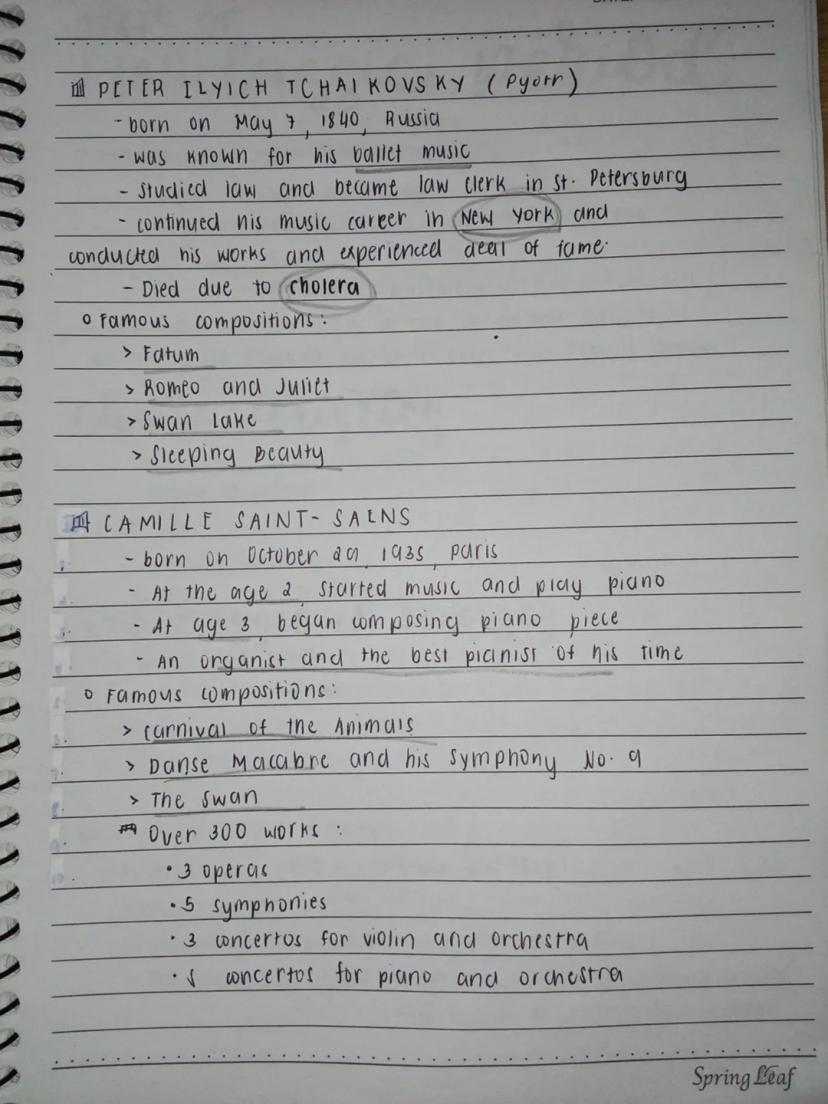 PETER ILYICH TCHAIKOVSKY (Pyotr)
- born on May 7, 1840, Russia
- was known for his ballet music
- studied law and became law clerk in St. Petersburg
- continued his music career in New York and
conducted his works and experienced deal of fame.
- Died due to cholera
o Famous compositions:
> Fatum
> Romeo and Juliet
> Swan Lake
> Sleeping Beauty
CAMILLE SAINT-SAENS
- born on October 29, 1935, Paris
- At the age 2, started music and play piano
- At age 3, began composing piano piece
- An organist and the best pianist of his time
o Famous compositions:
> Carnival of the Animals
> Danse Macabre and his Symphony No. 9
> The Swan
Over 300 works:
• 3 operas
• 5 symphonies
• 3 concertos for violin and orchestra
• 5 concertos for piano and orchestra
Spring Leaf